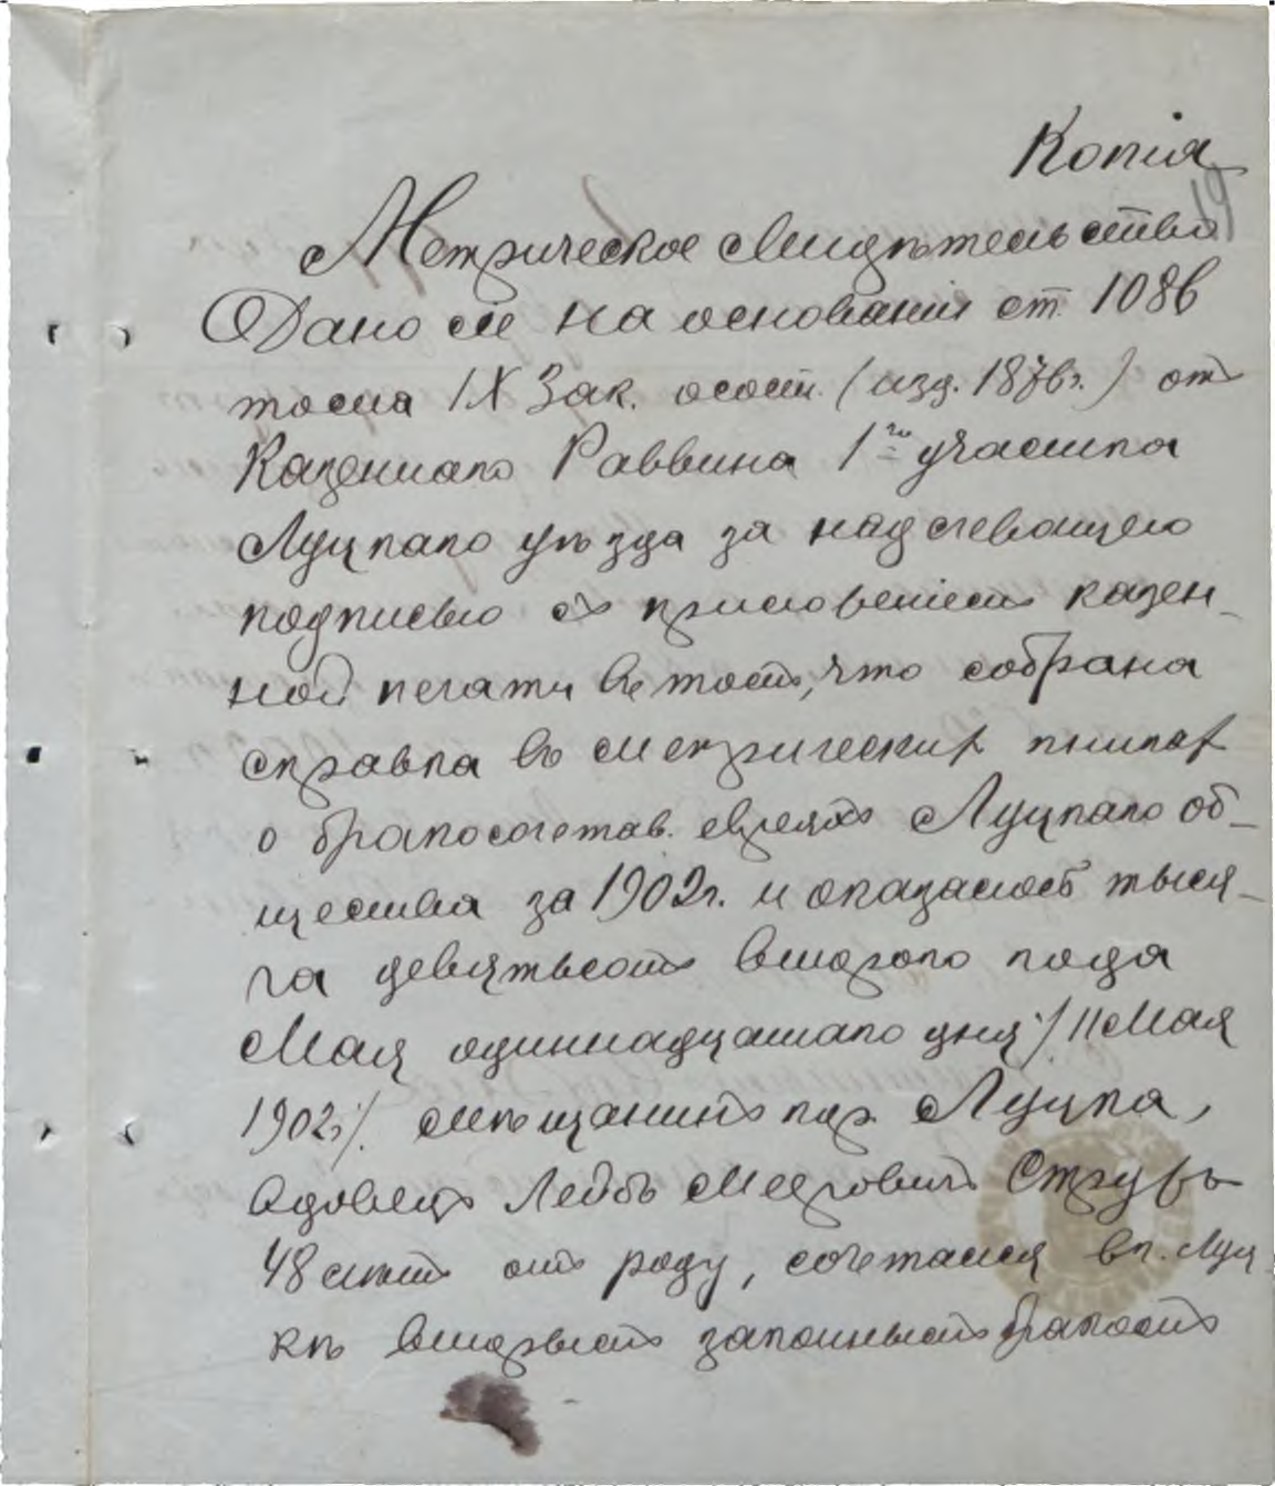 Копія
19
Метрическое Свидѣтельство
Дано сіе на основаніи ст. 1086
тома IX Зак. о сост. (изд. 1876 г.) отъ
Казеннаго Раввина 1го участка
Луцкаго уѣзда за надлежащею
подписью съ приложеніемъ казен-
ной печати въ томъ, что собрана
справка въ метрических книгах
о бракосочетав. евреяхъ Луцкаго об-
щества за 1902 г. и оказалось тыся-
ча девятьсотъ второго года
Мая одиннадцатаго дня /11 Мая
1902 г/. мѣщанинъ гор. Луцка,
вдовецъ Лейбъ Мееровичъ
48 лѣтъ отъ роду, сочетался в г. Луц
кѣ вторымъ законнымъ бракомъ